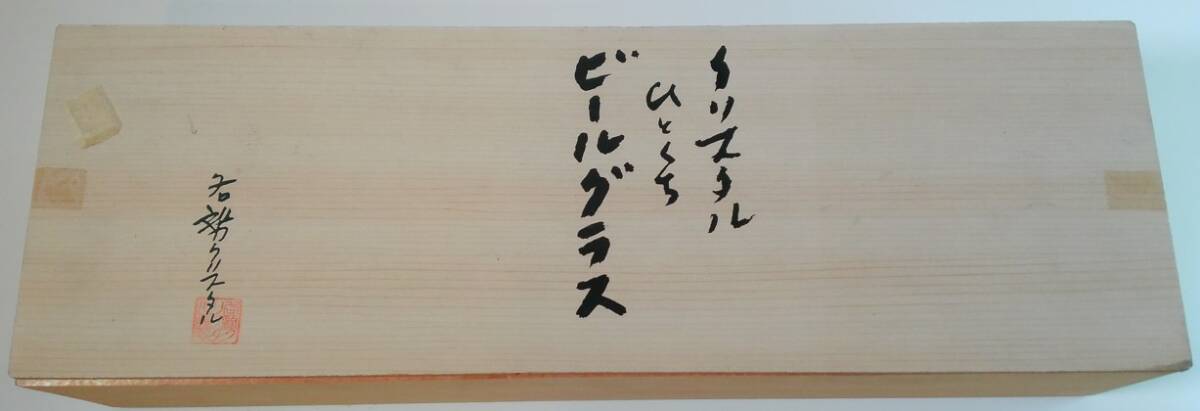 クリスタル
ひとくち
ビールグラス
名勢クリスタル